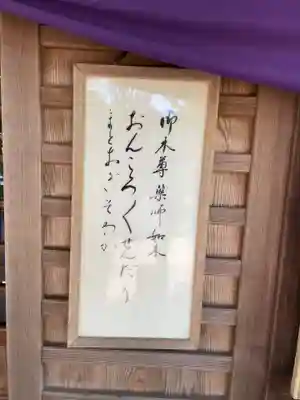 御本尊 薬師如来
おんころ〳〵せんだり
まとおぎそわか